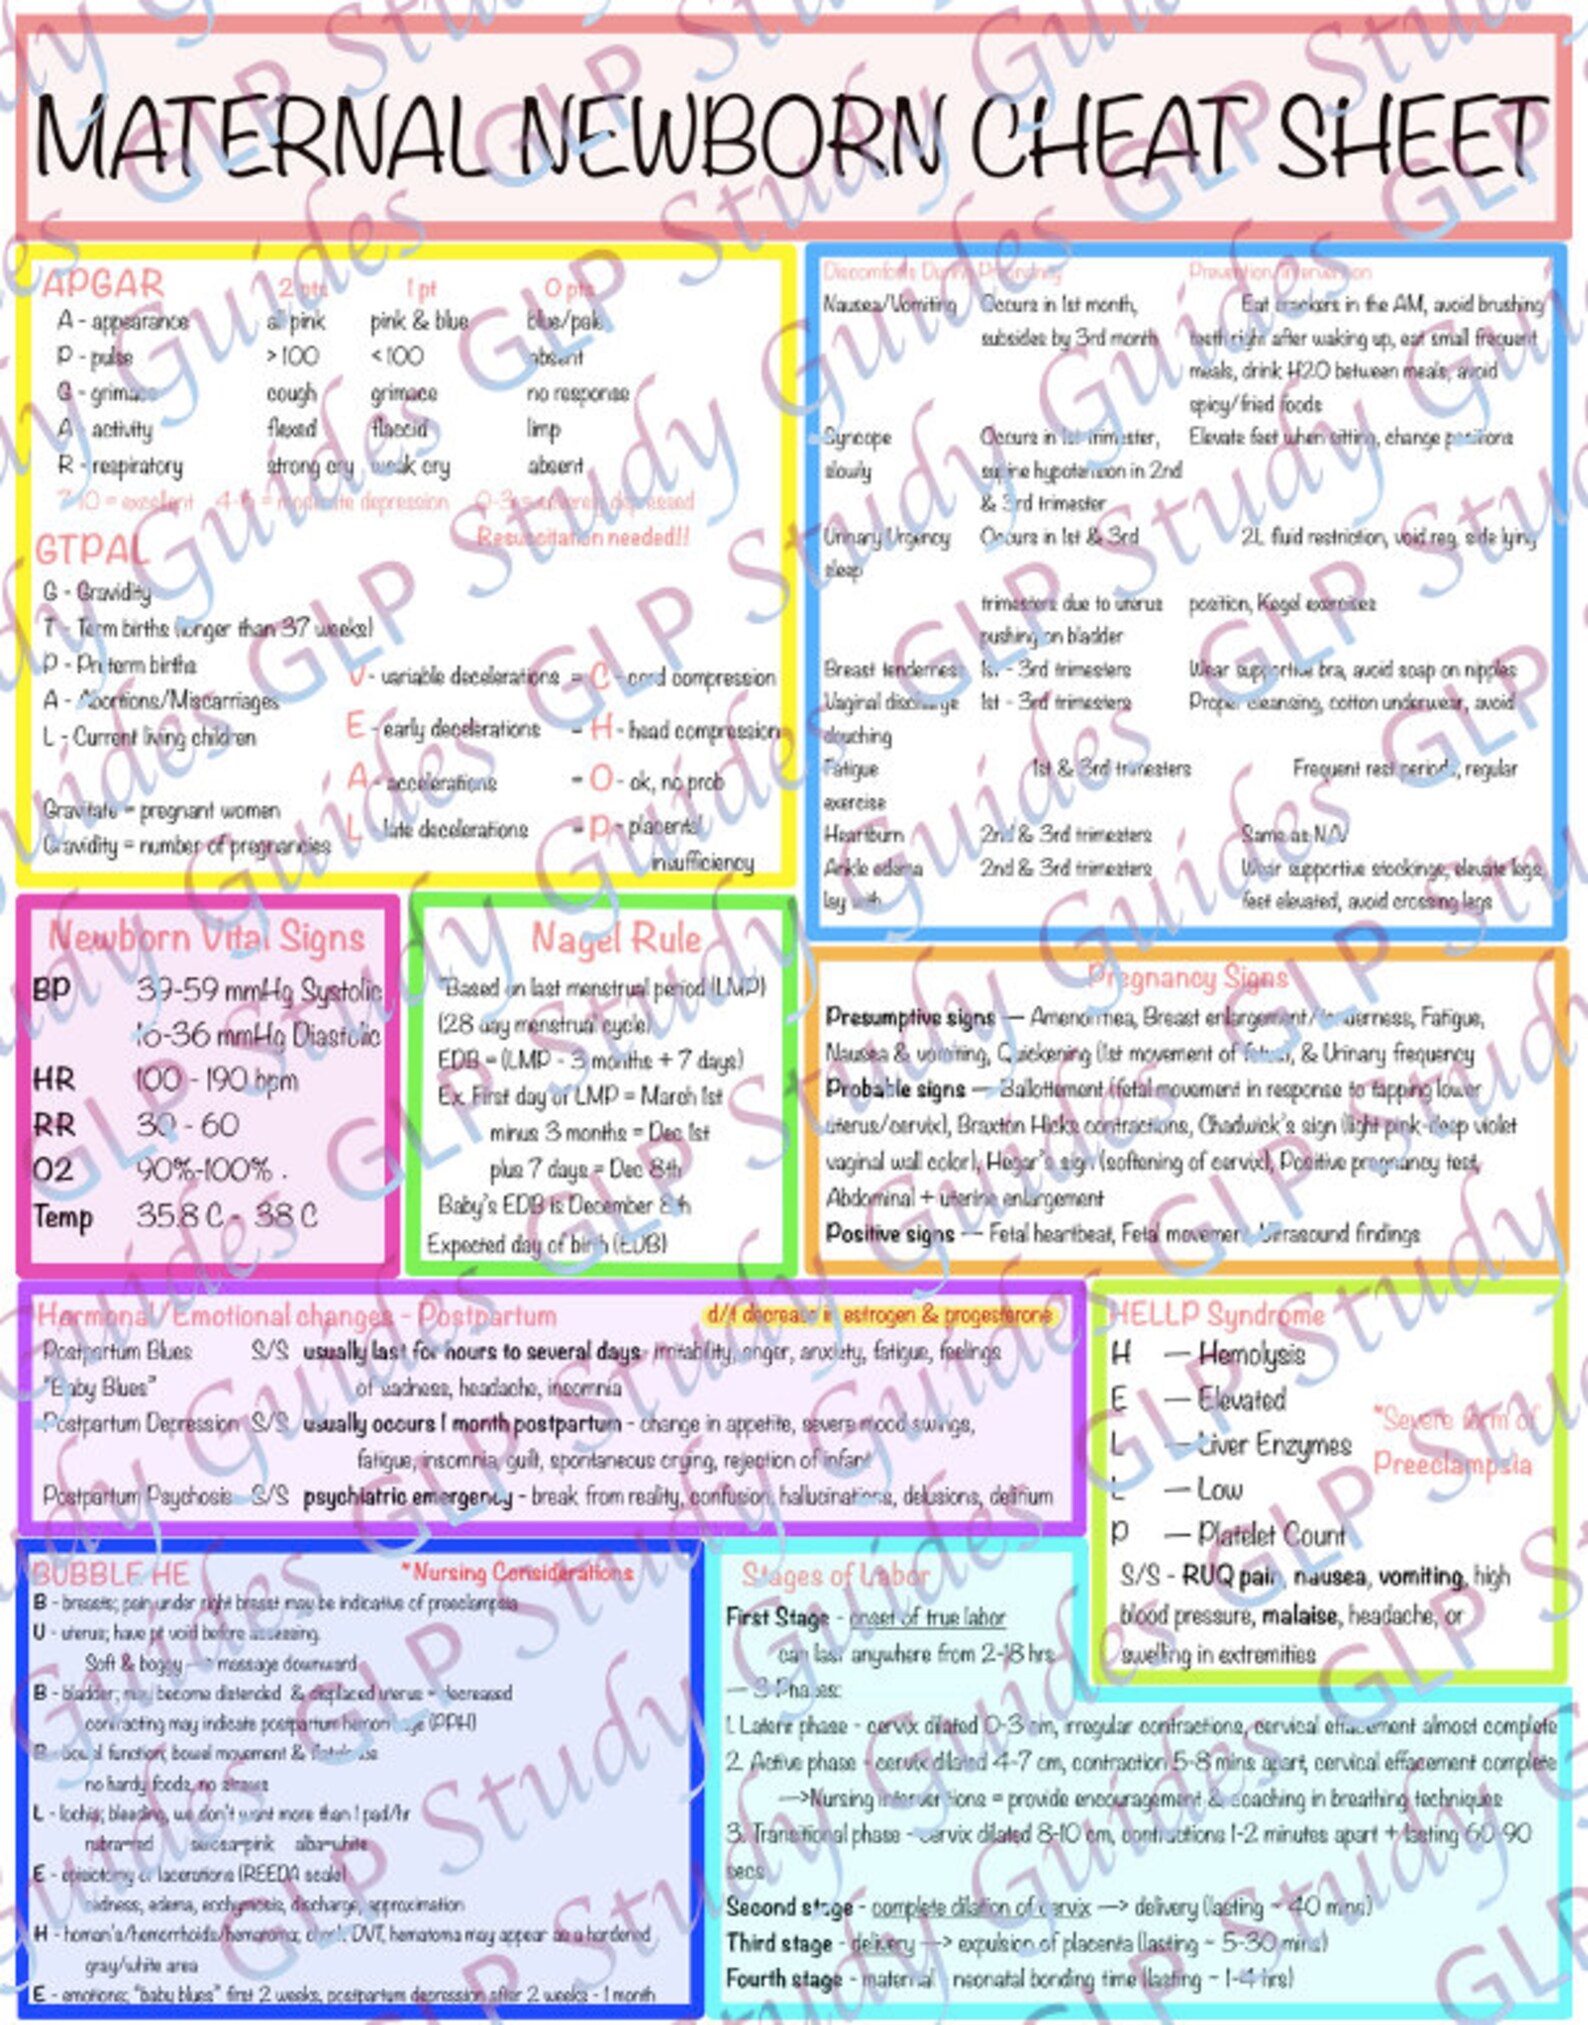 MATERNAL NEWBORN CHEAT SHEET
APGAR 2 pts 1 pt 0 pts
A - appearance all pink pink & blue blue/pale
P - pulse >100 <100 absent
G - grimace cough grimace no response
A - activity flexed flaccid limp
R - respiratory strong cry weak cry absent
7-10 = excellent 4-6 = moderate depression 0-3 = severely depressed
Resuscitation needed!!
GTPAL
G - Gravidity
T - Term births (longer than 37 weeks)
P - Preterm births
A - Abortions/Miscarriages
L - Current living children
Gravitate = pregnant women
Gravidity = number of pregnancies
V - variable decelerations = C - cord compression
E - early decelerations = H - head compression
A - accelerations = O - ok, no prob
L - late decelerations = P - placental
insufficiency
Discomforts During Pregnancy Prevention/Intervention
Nausea/Vomiting Occurs in 1st month, Eat crackers in the AM, avoid brushing
subsides by 3rd month teeth right after waking up, eat small frequent
meals, drink H2O between meals, avoid
spicy/fried foods
Syncope Occurs in 1st trimester, Elevate feet when sitting, change positions
slowly supine hypotension in 2nd
& 3rd trimester
Urinary Urgency Occurs in 1st & 3rd 2L fluid restriction, void reg, side lying
sleep
trimesters due to uterus position, Kegel exercises
pushing on bladder
Breast tenderness 1st - 3rd trimesters Wear supportive bra, avoid soap on nipples
Vaginal discharge 1st - 3rd trimesters Proper cleansing, cotton underwear, avoid
douching
Fatigue 1st & 3rd trimesters Frequent rest periods, regular
exercise
Heartburn 2nd & 3rd trimesters Same as N/V
Ankle edema 2nd & 3rd trimesters Wear supportive stockings, elevate legs,
lay with feet elevated, avoid crossing legs
Newborn Vital Signs
BP 39-59 mmHg Systolic
16-36 mmHg Diastolic
HR 100 - 190 bpm
RR 30 - 60
O2 90%-100% .
Temp 35.8 C - 38 C
Nagel Rule
*Based on last menstrual period (LMP)
(28 day menstrual cycle)
EDB = (LMP - 3 months + 7 days)
Ex. First day of LMP = March 1st
minus 3 months = Dec 1st
plus 7 days = Dec 8th
Baby's EDB is December 8th
Expected day of birth (EDB)
Pregnancy Signs
Presumptive signs — Amenorrhea, Breast enlargement/tenderness, Fatigue,
Nausea & vomiting, Quickening (1st movement of fetus), & Urinary frequency
Probable signs — Ballottement (fetal movement in response to tapping lower
uterus/cervix), Braxton Hicks contractions, Chadwick's sign (light pink-deep violet
vaginal wall color), Hegar's sign (softening of cervix), Positive pregnancy test,
Abdominal + uterine enlargement
Positive signs — Fetal heartbeat, Fetal movement, Ultrasound findings
Hormonal/Emotional changes - Postpartum d/t decrease in estrogen & progesterone
Postpartum Blues S/S usually last for hours to several days- irritability, anger, anxiety, fatigue, feelings
"Baby Blues" of sadness, headache, insomnia
Postpartum Depression S/S usually occurs 1 month postpartum - change in appetite, severe mood swings,
fatigue, insomnia, guilt, spontaneous crying, rejection of infant
Postpartum Psychosis S/S psychiatric emergency - break from reality, confusion, hallucinations, delusions, delirium
HELLP Syndrome
H — Hemolysis
E — Elevated
L — Liver Enzymes
L — Low
P — Platelet Count
*Severe form of
Preeclampsia
S/S - RUQ pain, nausea, vomiting, high
blood pressure, malaise, headache, or
swelling in extremities
BUBBLE HE *Nursing Considerations
B - breasts; pain under right breast may be indicative of preeclampsia
U - uterus; have pt void before assessing.
Soft & boggy —> massage downward
B - bladder; may become distended & displaced uterus - decreased
contracting may indicate postpartum hemorrhage (PPH)
B - bowel function; bowel movement & flatulence
no hardy foods, no straws
L - lochia; bleeding, we don't want more than 1 pad/hr
rubra=red serosa=pink alba=white
E - episiotomy or lacerations (REEDA scale)
redness, edema, ecchymosis, discharge, approximation
H - homan's/hemorrhoids/hematoma; check DVT, hematoma may appear as a hardened
gray/white area
E - emotions; "baby blues" first 2 weeks, postpartum depression after 2 weeks - 1 month
Stages of Labor
First Stage - onset of true labor
can last anywhere from 2-18 hrs
— 3 Phases:
1. Latent phase - cervix dilated 0-3 cm, irregular contractions, cervical effacement almost complete
2. Active phase - cervix dilated 4-7 cm, contraction 5-8 mins apart, cervical effacement complete
—>Nursing interventions = provide encouragement & coaching in breathing techniques
3. Transitional phase - cervix dilated 8-10 cm, contractions 1-2 minutes apart + lasting 60-90
secs
Second stage - complete dilation of cervix —> delivery (lasting ~ 40 mins)
Third stage - delivery —> expulsion of placenta (lasting ~ 5-30 mins)
Fourth stage - maternal - neonatal bonding time (lasting ~ 1-4 hrs)
GLP Study Guides